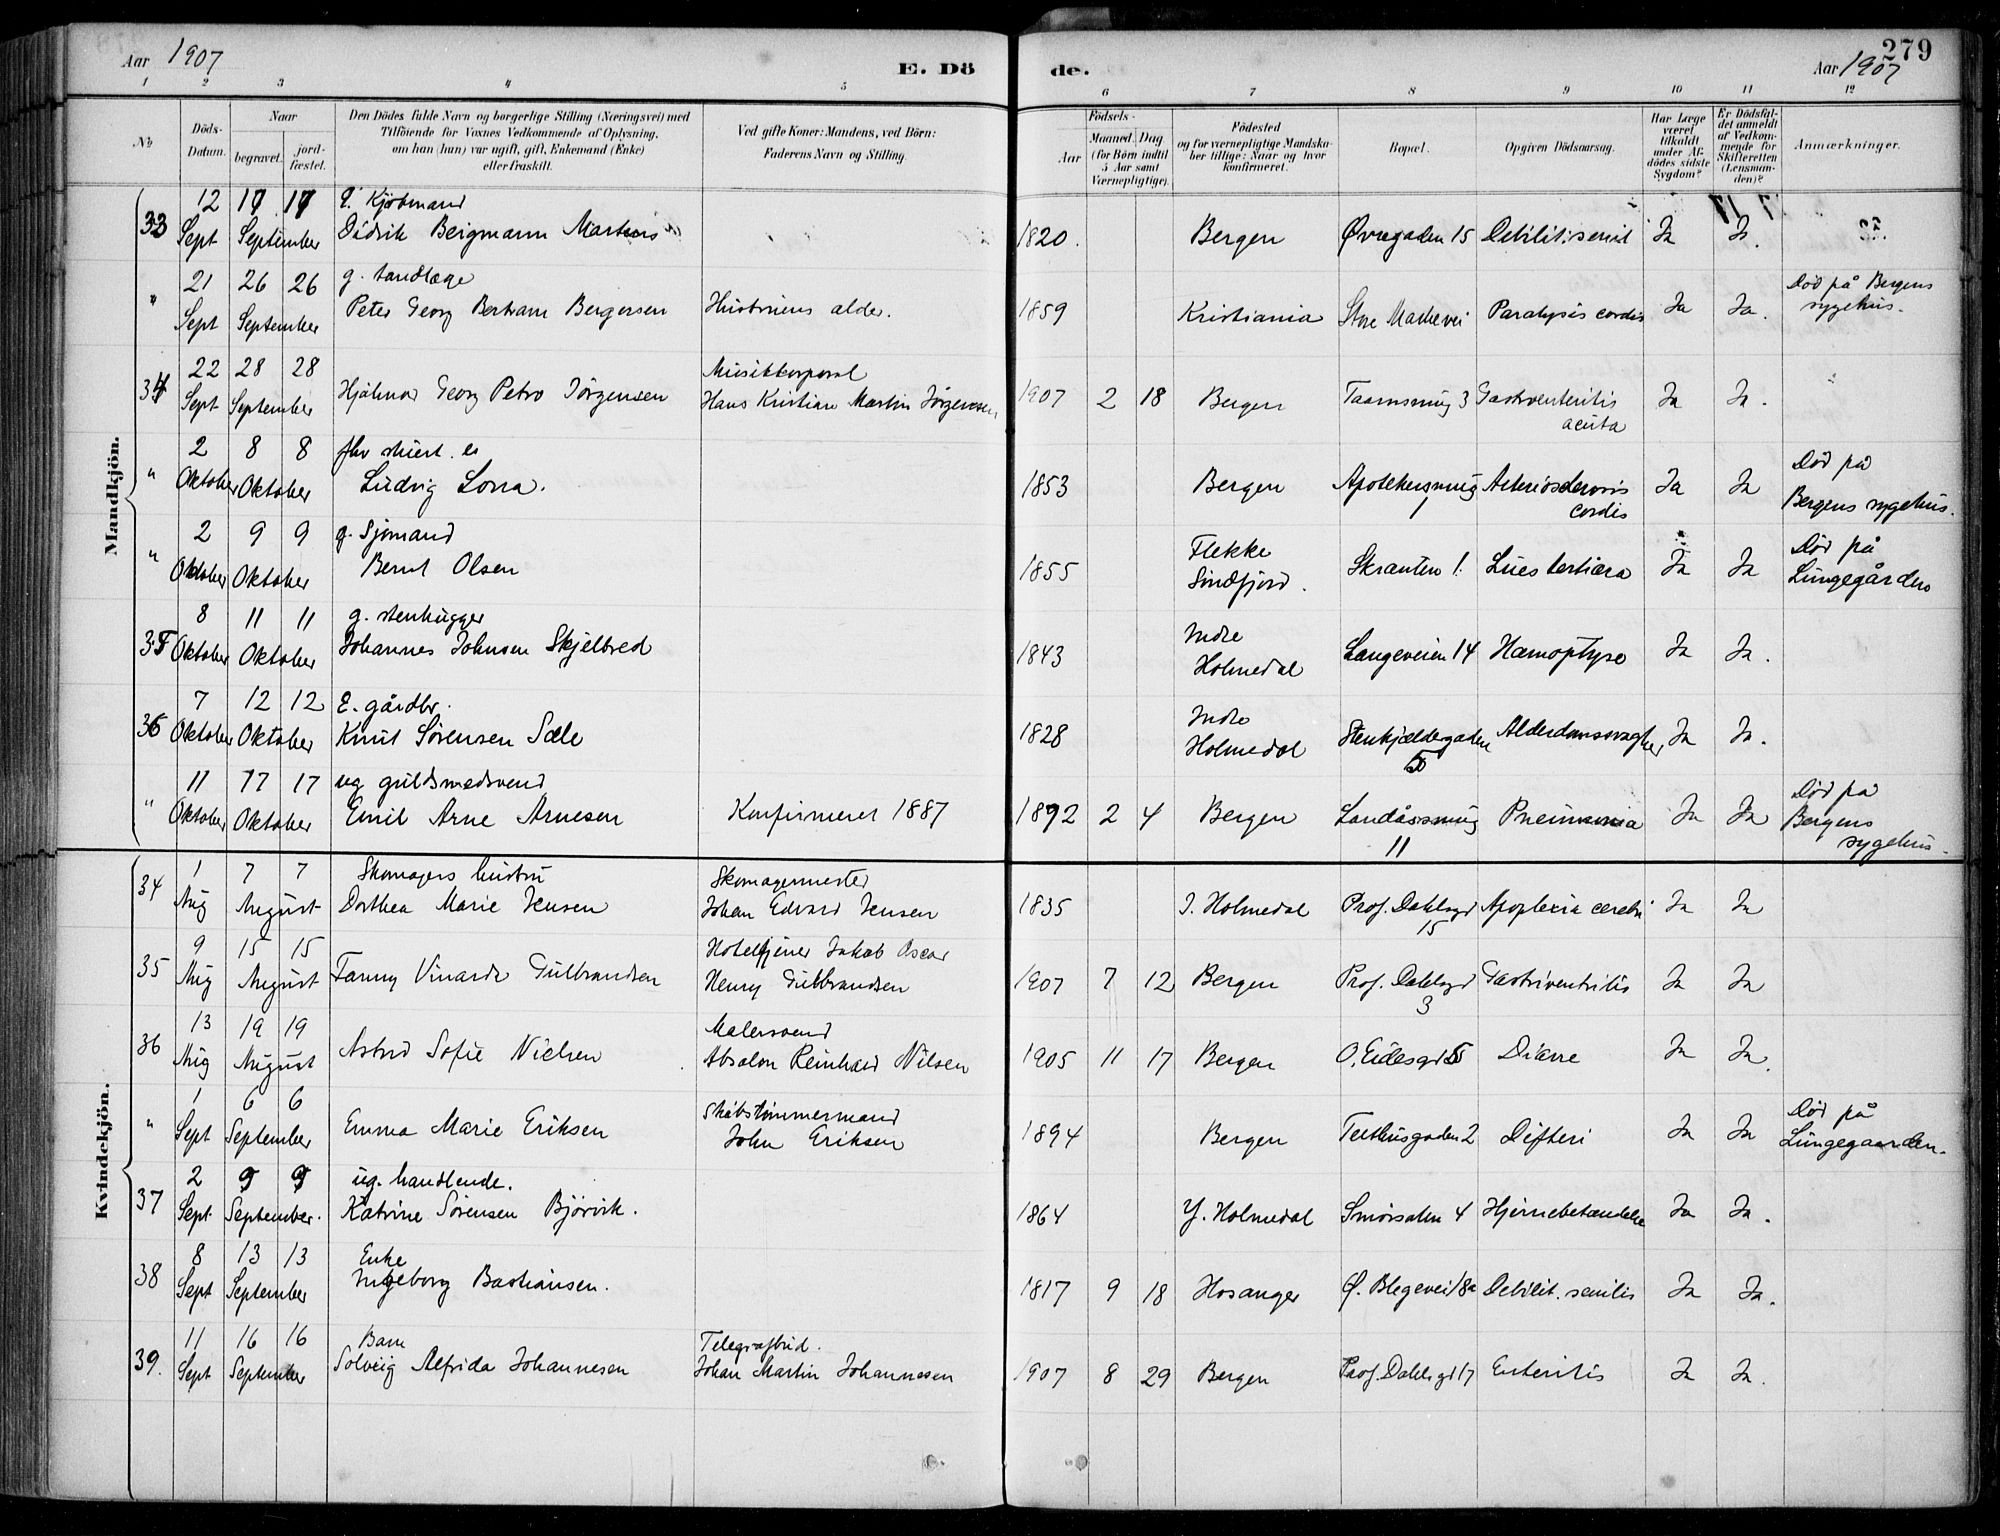 Aar 1907
E. Dö
de.
Aar 1907
279
1 2 3 4 5 6 7 8 9 10 11 12
No
Döds-Datum.
Naar begravet. jordfæstet.
Den Dödes fulde Navn og borgerlige Stilling (Næringsvei) med Tilföiende for Voxnes Vedkommende af Oplysning, om han (hun) var ugift, gift, Enkemand (Enke) eller fraskilt.
Ved gifte Koner: Mandens, ved Börn: Faderens Navn og Stilling.
Födsels-
Aar Maaned. Dag (for Börn indtil 5 Aar samt Værnepligtige).
Födested og for værnepligtige Mandskaber tillige: Naar og hvor konfirmeret.
Bopæl.
Opgiven Dödsaarsag.
Har Læge været tilkaldt under Afdödes sidste Sygdom?
Er Dödsfaldet anmeldt af Vedkommende for Skifteretten (Lensmanden)?
Anmærkninger.
Mandkjön.
33 12 Sept 17 17 September E. Kjøbmand Didrik Bergmann Martens 1820. Bergen Øvregaden 15 Debilit. senil Ja Ja.
" 21 Sept 26 26 September g. tandlæge Peter Georg Bertram Bergersen Hustruens alder. 1859 Kristiania Store Markevei Paralysis cordis Ja Ja. Død på Bergens sygehus.
34 22 Sept 28 28 September Hjalmar Georg Petro Jørgensen Musikkorporal Hans Kristian Martin Jørgensen 1907 2 18 Bergen 3 Gastroenteritis acuta Ja Ja.
" 2 Oktober 8 8 Oktober fhv Ludvig Lorra. 1853 Bergen Apothekersmug 1 Arteriosclerosis cordis Ja Ja Død på Bergens sygehus.
" 2 Oktober 9 9 Oktober g. Sjømand Bernt Olsen 1855 Flekke Søndfjord. Skranten 1. Lues tertiæra Ja Ja Død på Lungegården
35 8 Oktober 11 11 Oktober g. stenhugger Johannes Johnsen Skjelbred 1843 Indre Holmedal Langeveien 14 Hæmoptyse Ja Ja.
36 7 Oktober 12 12 Oktober E. gårdbr. Knut Sørensen Sæle 1828 Indre Holmedal Stenkjældergaden 5 Alderdomssvaghed Ja Ja.
" 11 Oktober 17 17 Oktober ug guldsmedsvend Emil Arne Arnesen Konfirmeret 1887 1892 2 4 Bergen Landåssmug 11 Pneumonia Ja Ja Død på Bergens sygehus.
Kvindekjön.
34 1 Aug 7 7 August Skomagers hustru Dorthea Marie Jensen Skomagermester Johan Edvard Jensen 1835 I. Holmedal Prof. Dahlsgd 15 Apoplexia cerebri Ja Ja
35 9 Aug 15 15 August Fanny Vinarda Gulbrandsen Hoteltjener Jakob Oscar Henry Gulbrandsen 1907 7 12 Bergen Prof. Dahlsgd 3 Gastroventritis Ja Ja
36 13 Aug 19 19 August Astrid Sofie Nielsen Malersvend Absalon Reinhard Nilsen 1905 11 17 Bergen O. Eidesgd 5 Diarre Ja Ja.
" 1 Sept 6 6 September Emma Marie Eriksen Skibstømmermand John Eriksen 1894 Bergen Teethusgaden 2 Difteri Ja Ja Død på Lungegaarden.
37 2 Sept. 9 9 September. ug. handlende. Katrine Sørensen Bjørvik. 1864 Y. Holmedal Smørsalen 4 Hjernebetændelse Ja Ja.
38 8 Sept 13 13 September Enke Ingeborg Bastiansen. 1817 9 18 Hosanger Ø. Blegevei 18a Debilit. senilis Ja Ja.
39. 11 Sept 16 16 September Barn Solveig Alfrida Johannesen Telegrafbud. Johan Martin Johannesen 1907 8 29 Bergen Prof. Dahlsgd 17 Enteritis Ja Ja.